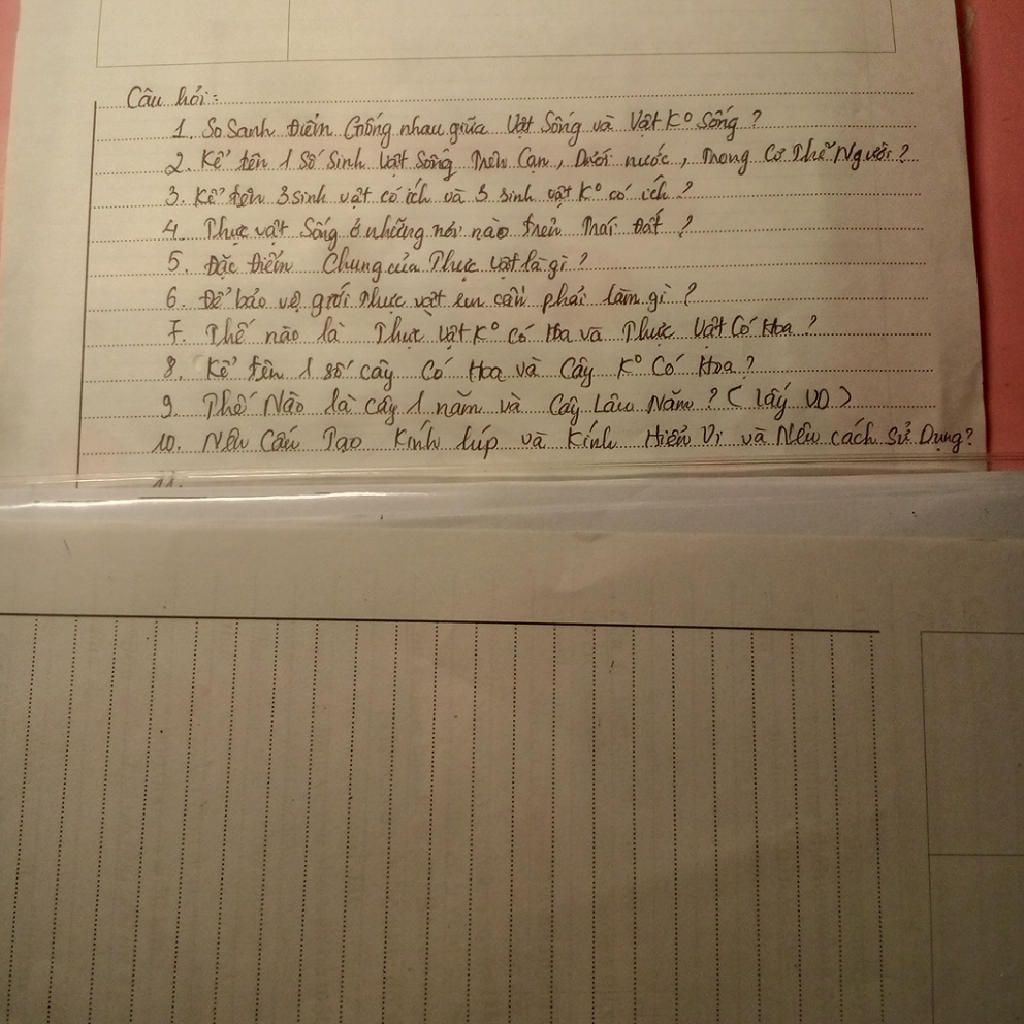 Câu hỏi:
1. So Sanh Điểm Giống nhau giữa Vật Sống và Vật K° Sống ?
2. Kể tên 1 Số Sinh Vật Sống Trên Cạn, Dưới nước, Trong Cơ Thể Người ?
3. Kể tên 3 sinh vật có ích và 3 sinh vật K° có ích ?
4. Thực vật Sống ở những nơi nào trên Trái Đất ?
5. Đặc Điểm Chung của Thực vật là gì ?
6. Để bảo vệ giới thực vật em cần phải làm gì ?
7. Thế nào là Thực Vật K° có Hoa và Thực Vật Có Hoa ?
8. Kể tên 1 số cây Có Hoa và Cây K° Có Hoa ?
9. Thế Nào là cây 1 năm và Cây Lâu Năm ? ( lấy VD )
10. Nêu Cấu Tạo Kính lúp và Kính Hiển Vi và Nêu cách Sử Dụng ?
11.